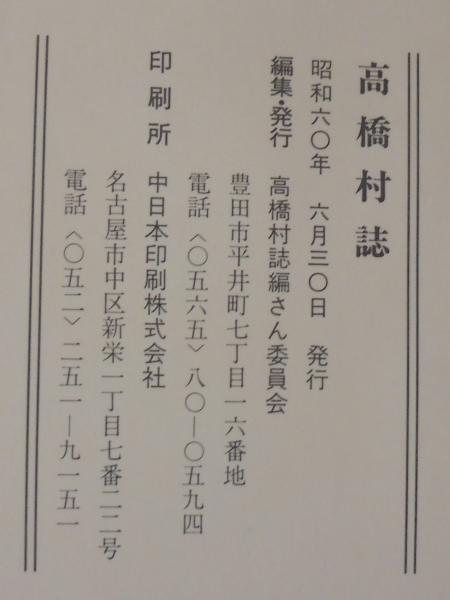 高橋村誌
昭和六〇年 六月三〇日 発行
編集・発行 高橋村誌編さん委員会
豊田市平井町七丁目一六番地
電話〈〇五六五〉八〇―〇五九四
印刷所 中日本印刷株式会社
名古屋市中区新栄一丁目七番二二号
電話〈〇五二〉二五一―九一五一